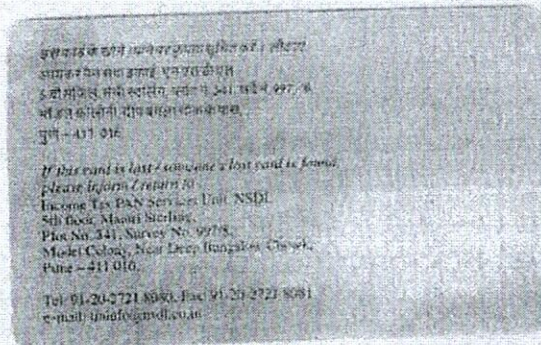 इस कार्ड के खोने / पाने पर कृपया सूचित करें / लौटाएं
आयकर पैन सेवा इकाई, एन एस डी एल
5 वी मंजिल, मंत्री स्टर्लिंग, प्लॉट नं. 341, सर्वे नं. 997/8,
मॉडल कॉलोनी, दीप बंगला चौक के पास,
पुणे – 411 016

If this card is lost / someone's lost card is found,
please inform / return to :
Income Tax PAN Services Unit, NSDL
5th floor, Mantri Sterling,
Plot No. 341, Survey No. 997/8,
Model Colony, Near Deep Bungalow Chowk,
Pune – 411 016.

Tel: 91-20-2721 8080, Fax: 91-20-2721 8081
e-mail: tininfo@nsdl.co.in